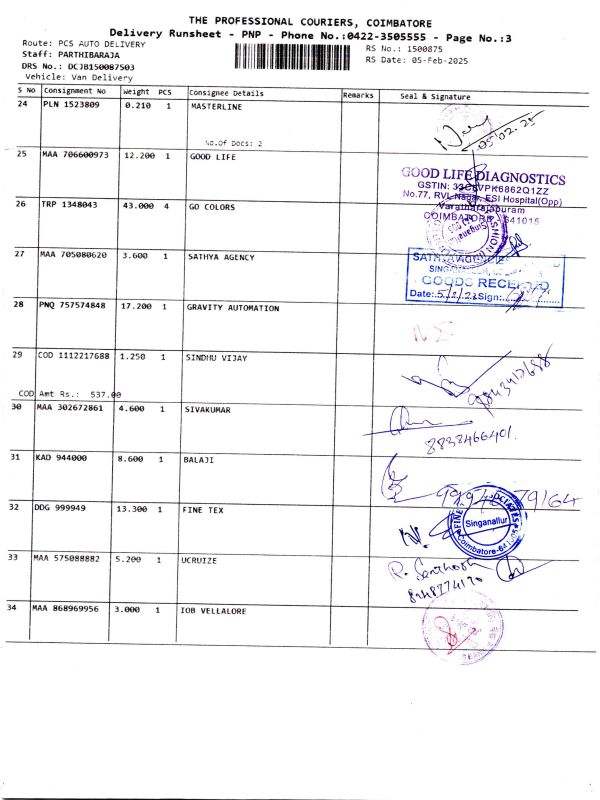 THE PROFESSIONAL COURIERS, COIMBATORE
Delivery Runsheet - PNP - Phone No.:0422-3505555 - Page No.:3
Route: PCS AUTO DELIVERY
RS No.: 1500875
Staff: PARTHIBARAJA
RS Date: 05-Feb-2025
DRS No.: DCJB150087503
Vehicle: Van Delivery
S No Consignment No Weight PCS Consignee Details Remarks Seal & Signature
24 PLN 1523809 0.210 1 MASTERLINE
No.Of Docs: 2
05'02.25
25 MAA 706600973 12.200 1 GOOD LIFE
GOOD LIFE DIAGNOSTICS
No.77, RVL Nagar, ESI Hospital(Opp)
Varatharajapuram
COIMBATORE - 641015
26 TRP 1348043 43.000 4 GO COLORS
27 MAA 705080620 3.600 1 SATHYA AGENCY
GOODS RECEIVED
Date: Sign:
28 PNQ 757574848 17.200 1 GRAVITY AUTOMATION
29 COD 1112217688 1.250 1 SINDHU VIJAY
COD Amt Rs.: 537.00
30 MAA 302672861 4.600 1 SIVAKUMAR
31 KAD 944000 8.600 1 BALAJI
32 DDG 999949 13.300 1 FINE TEX
Singanallur
33 MAA 575088882 5.200 1 UCRUIZE
R. Santhosh
34 MAA 868969956 3.000 1 IOB VELLALORE